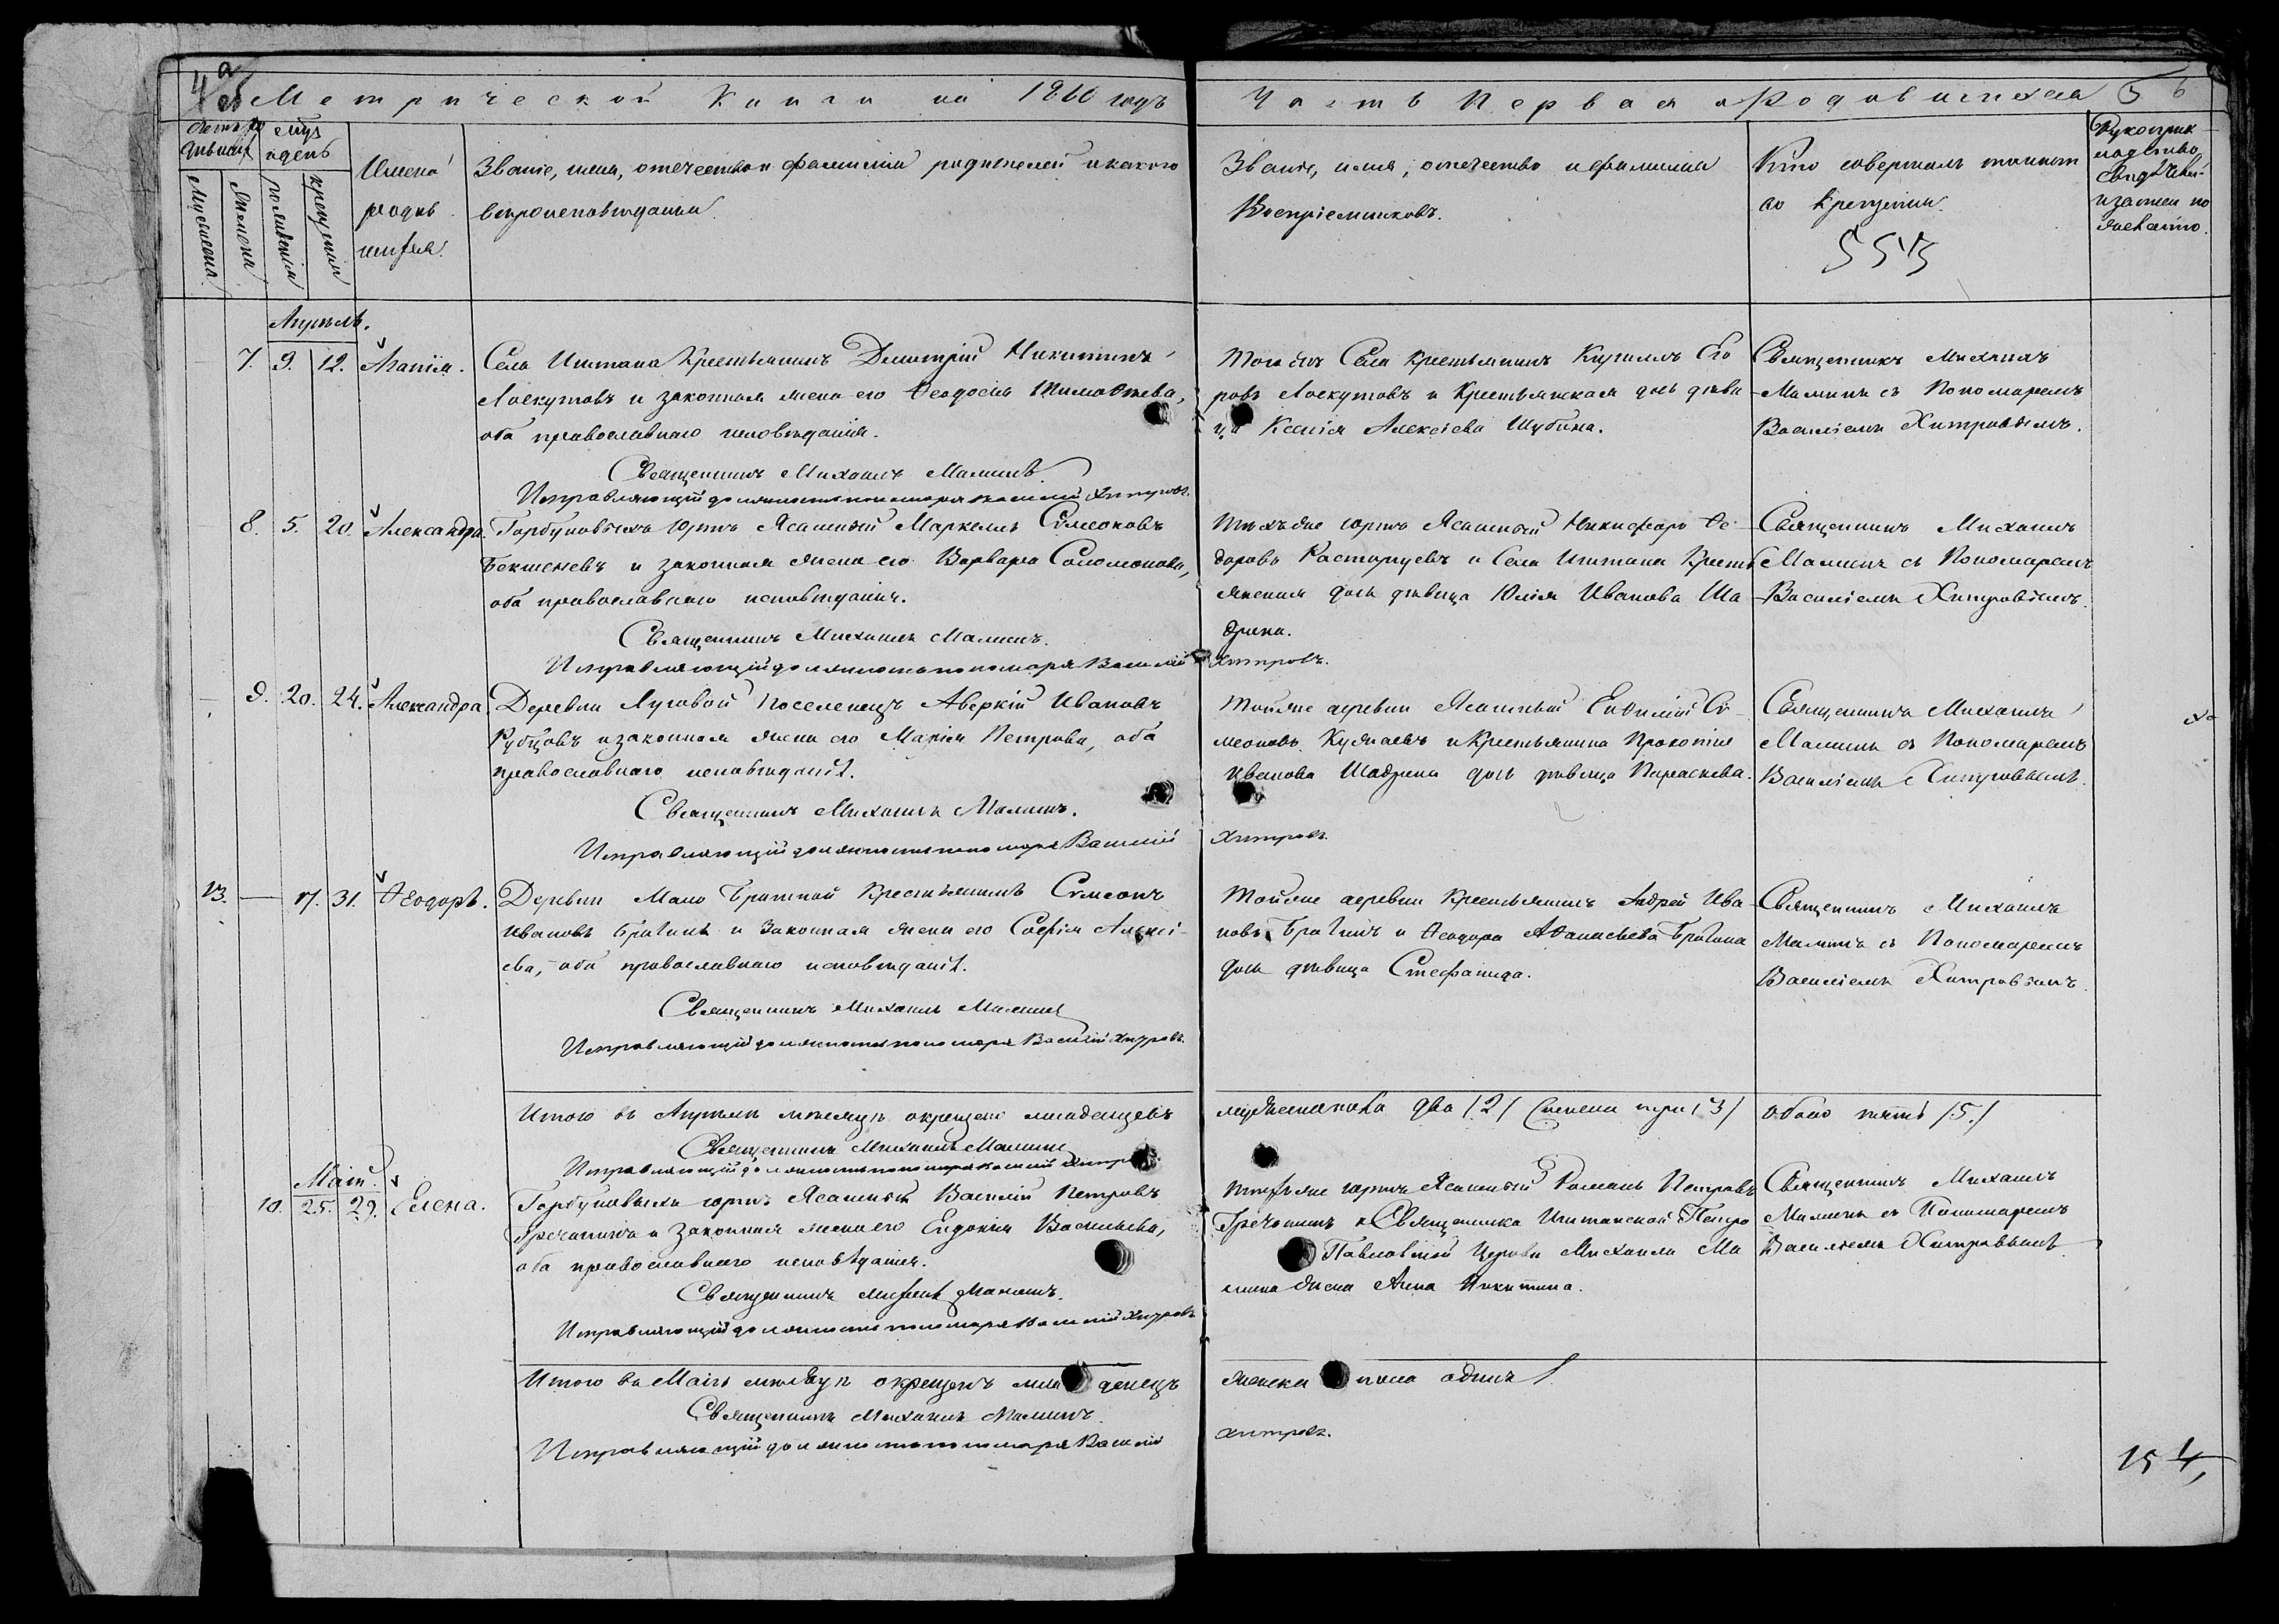 Метрической Книги на 1860 годъ
Часть Первая о Родившихся
Имена родившихся.
Званіе, имя, отечество и фамилія родителей и какого
вѣроисповѣданія.
Званіе, имя, отечество и фамилія
Воспріемниковъ.
Кто совершалъ таинство
Крещенія.
мужеска
женска
рожденія
крещенія
553
Апрѣль.
7. 9. 12. Агапія.
Села Иштана Крестьянинъ Димитрій Никитинъ
Лоскутовъ и законная жена его Ѳеодосія Тимоѳеева,
оба православнаго исповѣданія.
Священникъ Михаилъ Малинъ
Исправляющій должность пономаря Василій Хитровъ.
Тогоже Села крестьянинъ Кириллъ Его
ровъ Лоскутовъ и Крестьянская дочь дѣви
ца Ксенія Алексіева Шубина.
Священникъ Михаилъ
Малинъ съ Пономаремъ
Василіемъ Хитровымъ.
8. 5. 20. Александра.
Горбуновыхъ юртъ Ясашный Маркеллъ Симеоновъ
Бекшеневъ и законная жена его Варвара Соломонова,
оба православнаго исповѣданія.
Священникъ Михаилъ Малинъ.
Исправляющій должность пономаря Василій Хитровъ.
Тѣхъже юртъ Ясашный Никифоръ Ѳе
доровъ Расторгуевъ и Села Иштана Кресть
янская дочь дѣвица Юлія Иванова Ша
дрина.
Священникъ Михаилъ
Малинъ съ Пономаремъ
Василіемъ Хитровымъ.
9. 20. 24. Александра.
Деревни Луговой Поселенецъ Аверкій Ивановъ
Рубцовъ и законная жена его Марія Петрова, оба
православнаго исповѣданія.
Священникъ Михаилъ Малинъ.
Исправляющій должность пономаря Василій Хитровъ.
Тойже деревни Ясашный Евѳимій Си
меоновъ и Крестьянина Прокопія
Иванова Шадрина дочь дѣвица Параскева.
Священникъ Михаилъ
Малинъ съ Пономаремъ
Василіемъ Хитровымъ.
13. — 17. 31. Ѳеодоръ.
Деревни Мало Брагиной Крестьянинъ Симеонъ
Ивановъ Брагинъ и Законная жена его Софія Алексі
ева, оба православнаго исповѣданія.
Священникъ Михаилъ Малинъ
Исправляющій должность пономаря Василій Хитровъ.
Тойже деревни Крестьянинъ Андрей Ива
новъ Брагинъ и Ѳеодора Аѳанасьева Брагина
дочь дѣвица Стефанида.
Священникъ Михаилъ
Малинъ съ Пономаремъ
Василіемъ Хитровымъ.
Итого въ Апрѣлѣ мѣсяцѣ окрещено младенцевъ мужескаго два /2/ женска три /3/ обоего пять /5/
Священникъ Михаилъ Малинъ
Исправляющій должность пономаря Василій
Май.
10. 25. 29. Елена.
Горбуновыхъ юртъ Ясашный Василій Петровъ
Гречанинъ и законная жена его Евдокія Васильева,
оба православнаго исповѣданія.
Священникъ Михаилъ Малинъ.
Исправляющій должность пономаря Василій Хитровъ
Тѣхъже юртъ Ясашный Романъ Петровъ
Гречанинъ и Священника Иштанской Петро
Павловской Церкви Михаила Ма
лина жена Анна Никитина.
Священникъ Михаилъ
Малинъ съ Пономаремъ
Василіемъ Хитровымъ
Итого въ Маіѣ мѣсяцѣ окрещенъ младенецъ женска пола одинъ 1.
Священникъ Михаилъ Малинъ.
Исправляющій должность пономаря Василій Хитровъ.
154